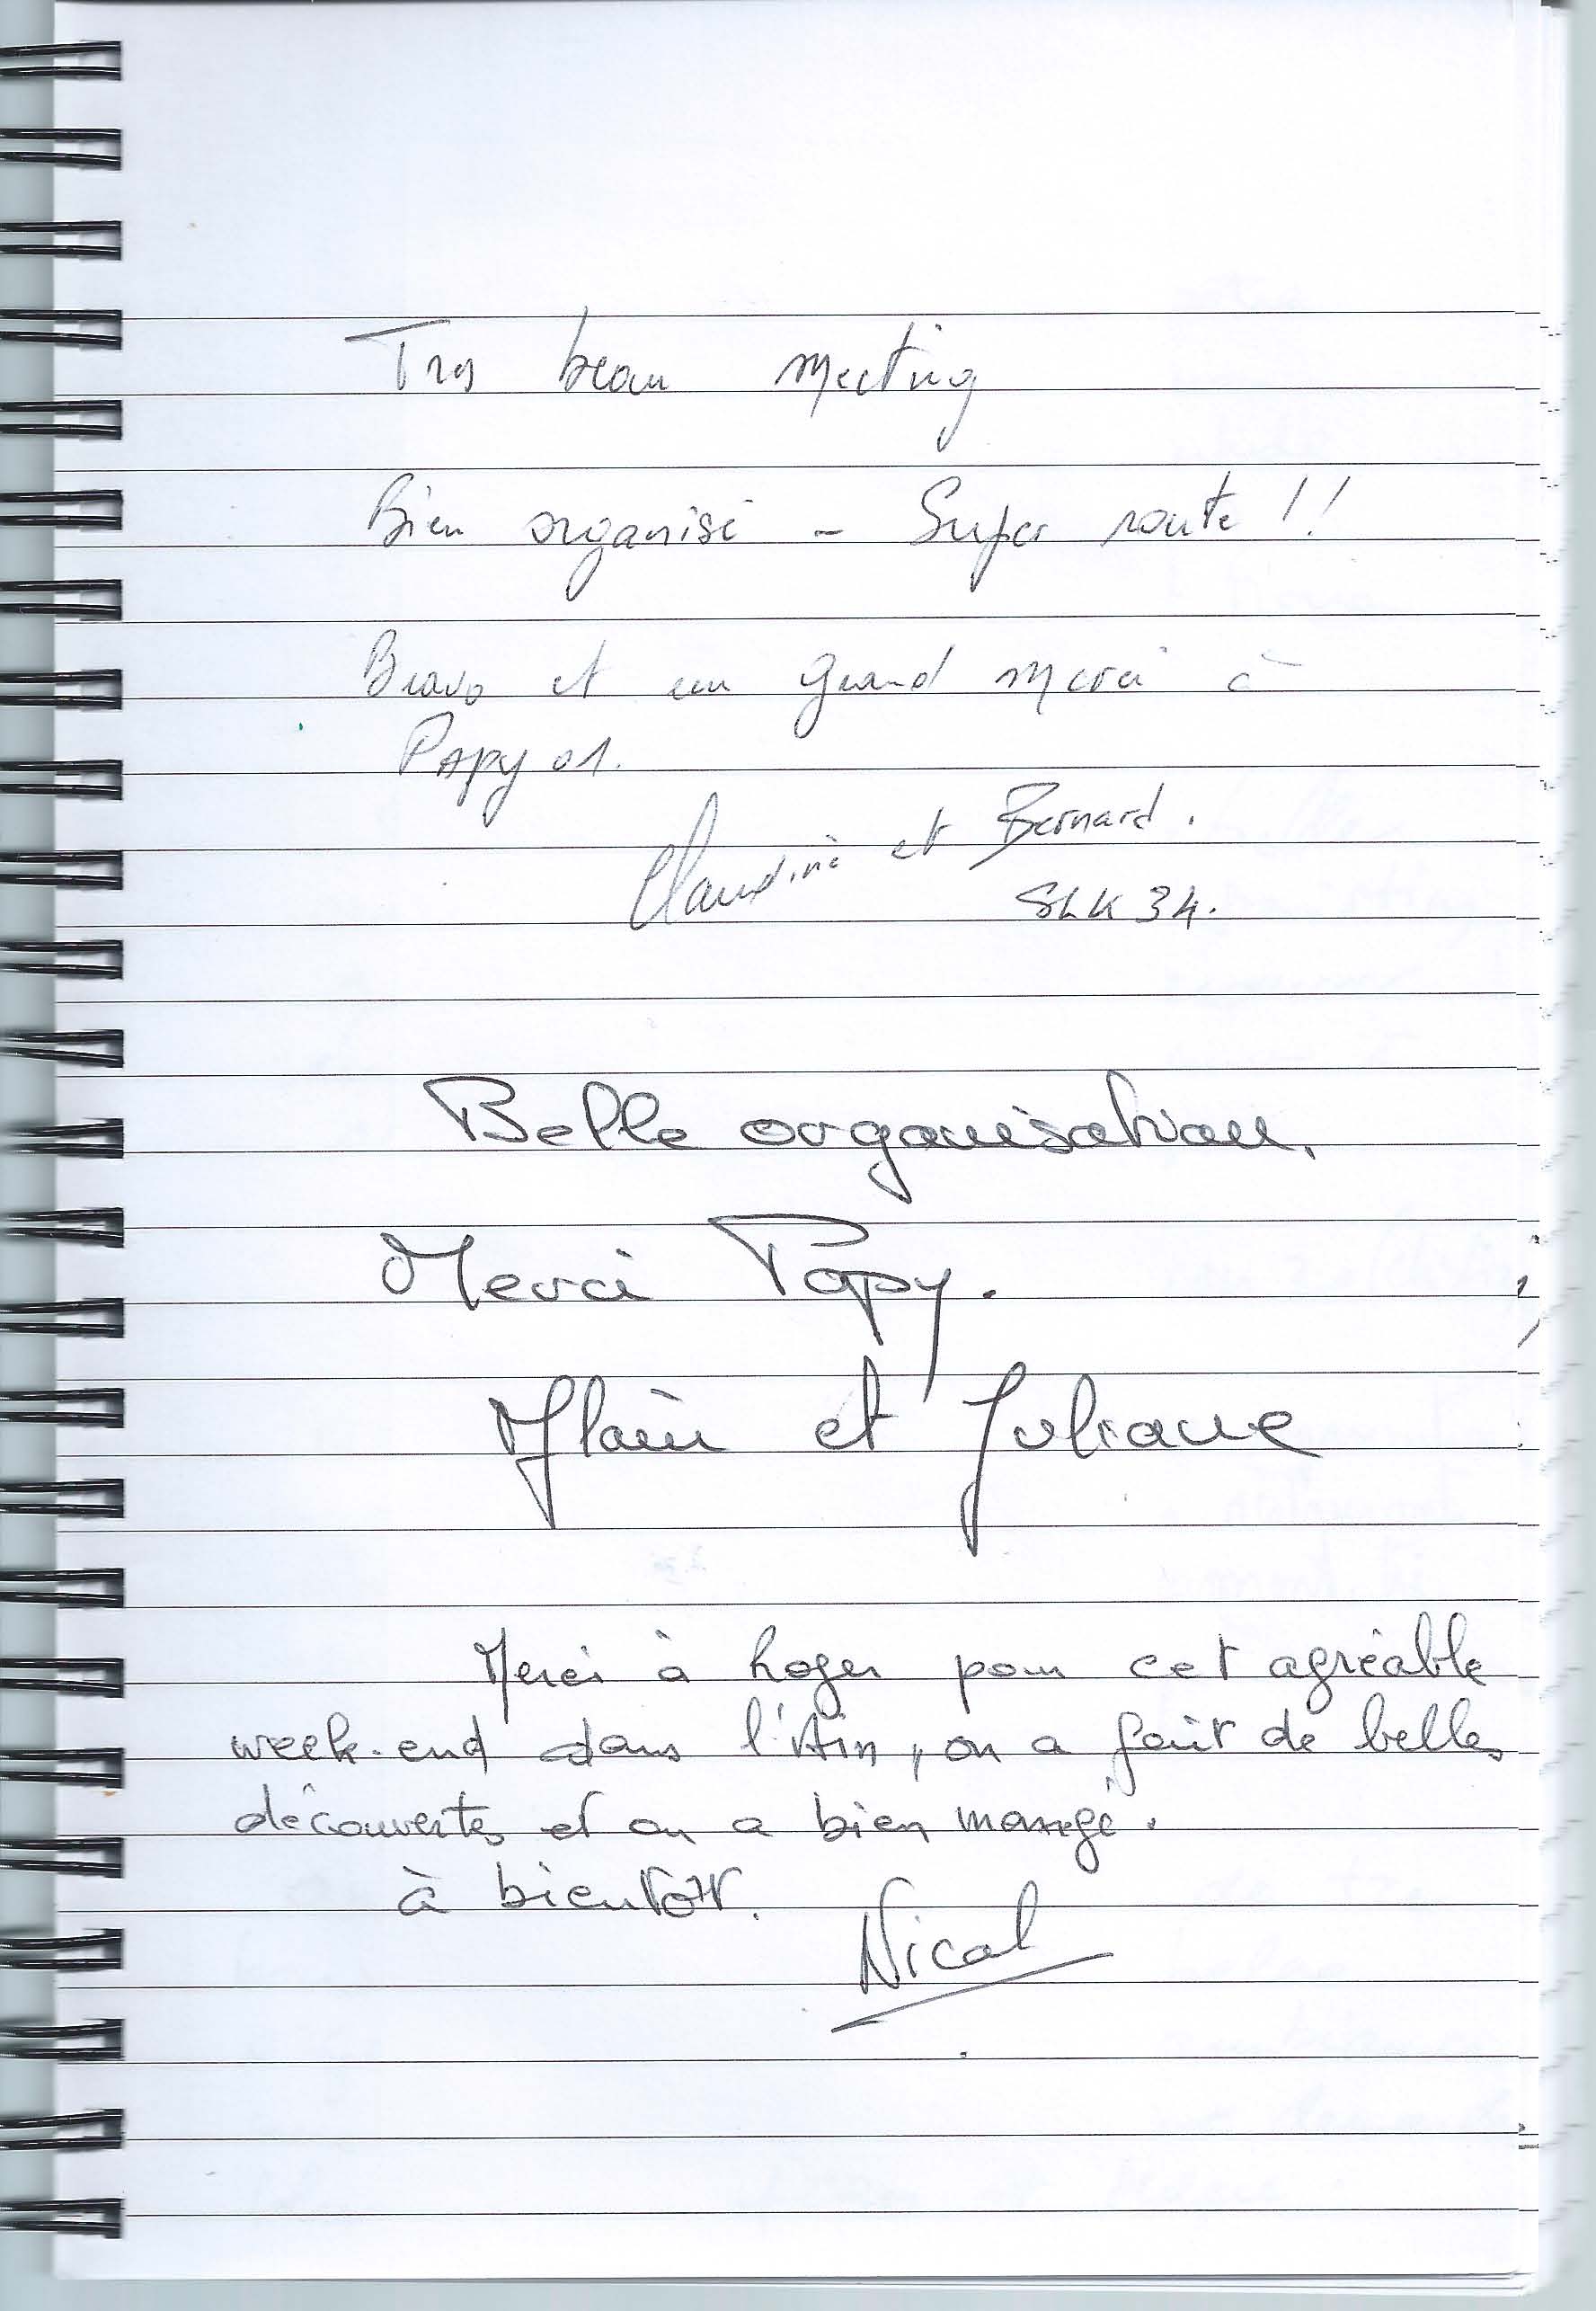 Très beau meeting
Bien organisé - Super route !!
Bravo et un grand merci à
PApy 01.
Claudine et Bernard.
SLK 34.
Belle organisation.
Merci Papy.
Alain et Juliane
Merci à Roger pour cet agréable
week-end dans l'Ain, on a fait de belles
découvertes et on a bien mangé.
à bientôt.
Nical